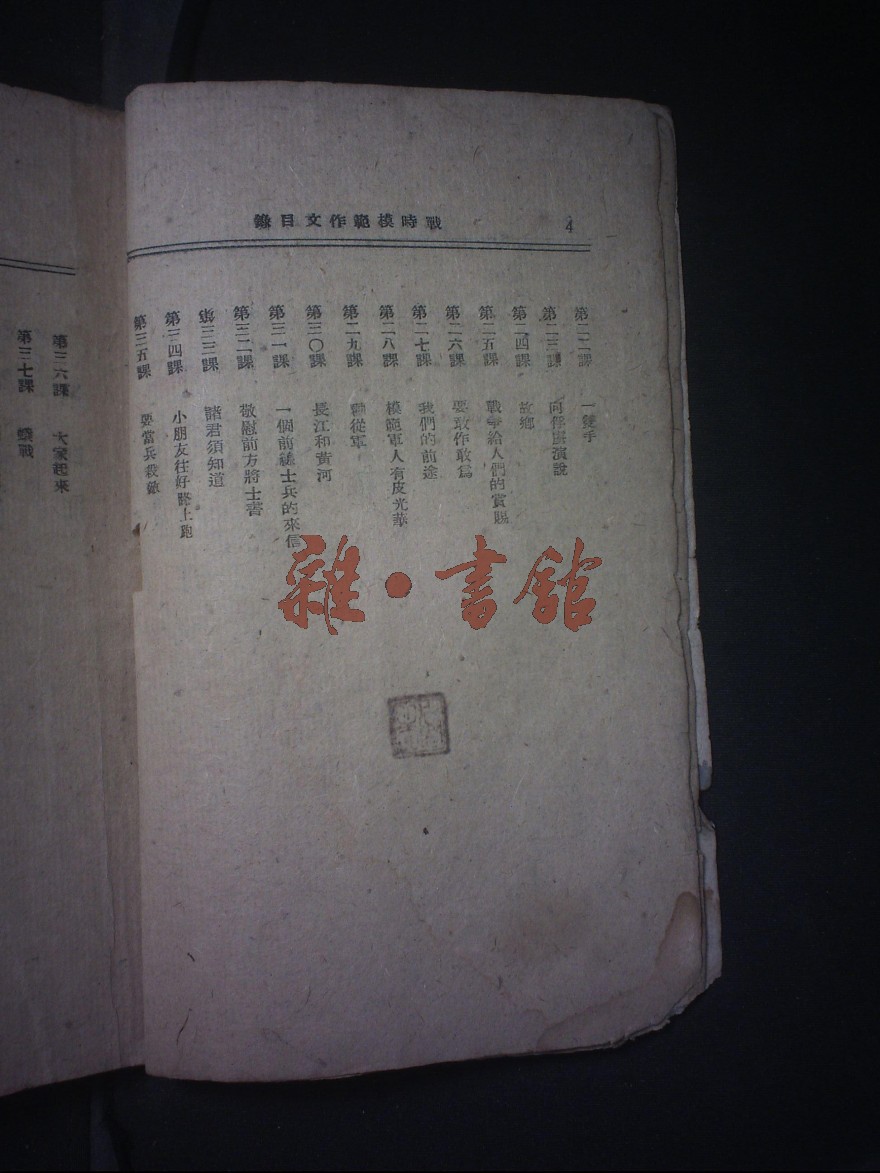 戰時模範作文目錄 4
第二二課 一雙手
第二三課 向俘虜演說
第二四課 故鄉
第二五課 戰爭給人們的賞賜
第二六課 要敢作敢爲
第二七課 我們的前途
第二八課 模範軍人有皮光華
第二九課 從軍
第三〇課 長江和黃河
第三一課 一個前線士兵的來信
第三二課 敬慰前方將士書
第三三課 諸君須知道
第三四課 小朋友往好路上跑
第三五課 要當兵殺敵
第三六課 大家起來
第三七課 戰
雜·書館